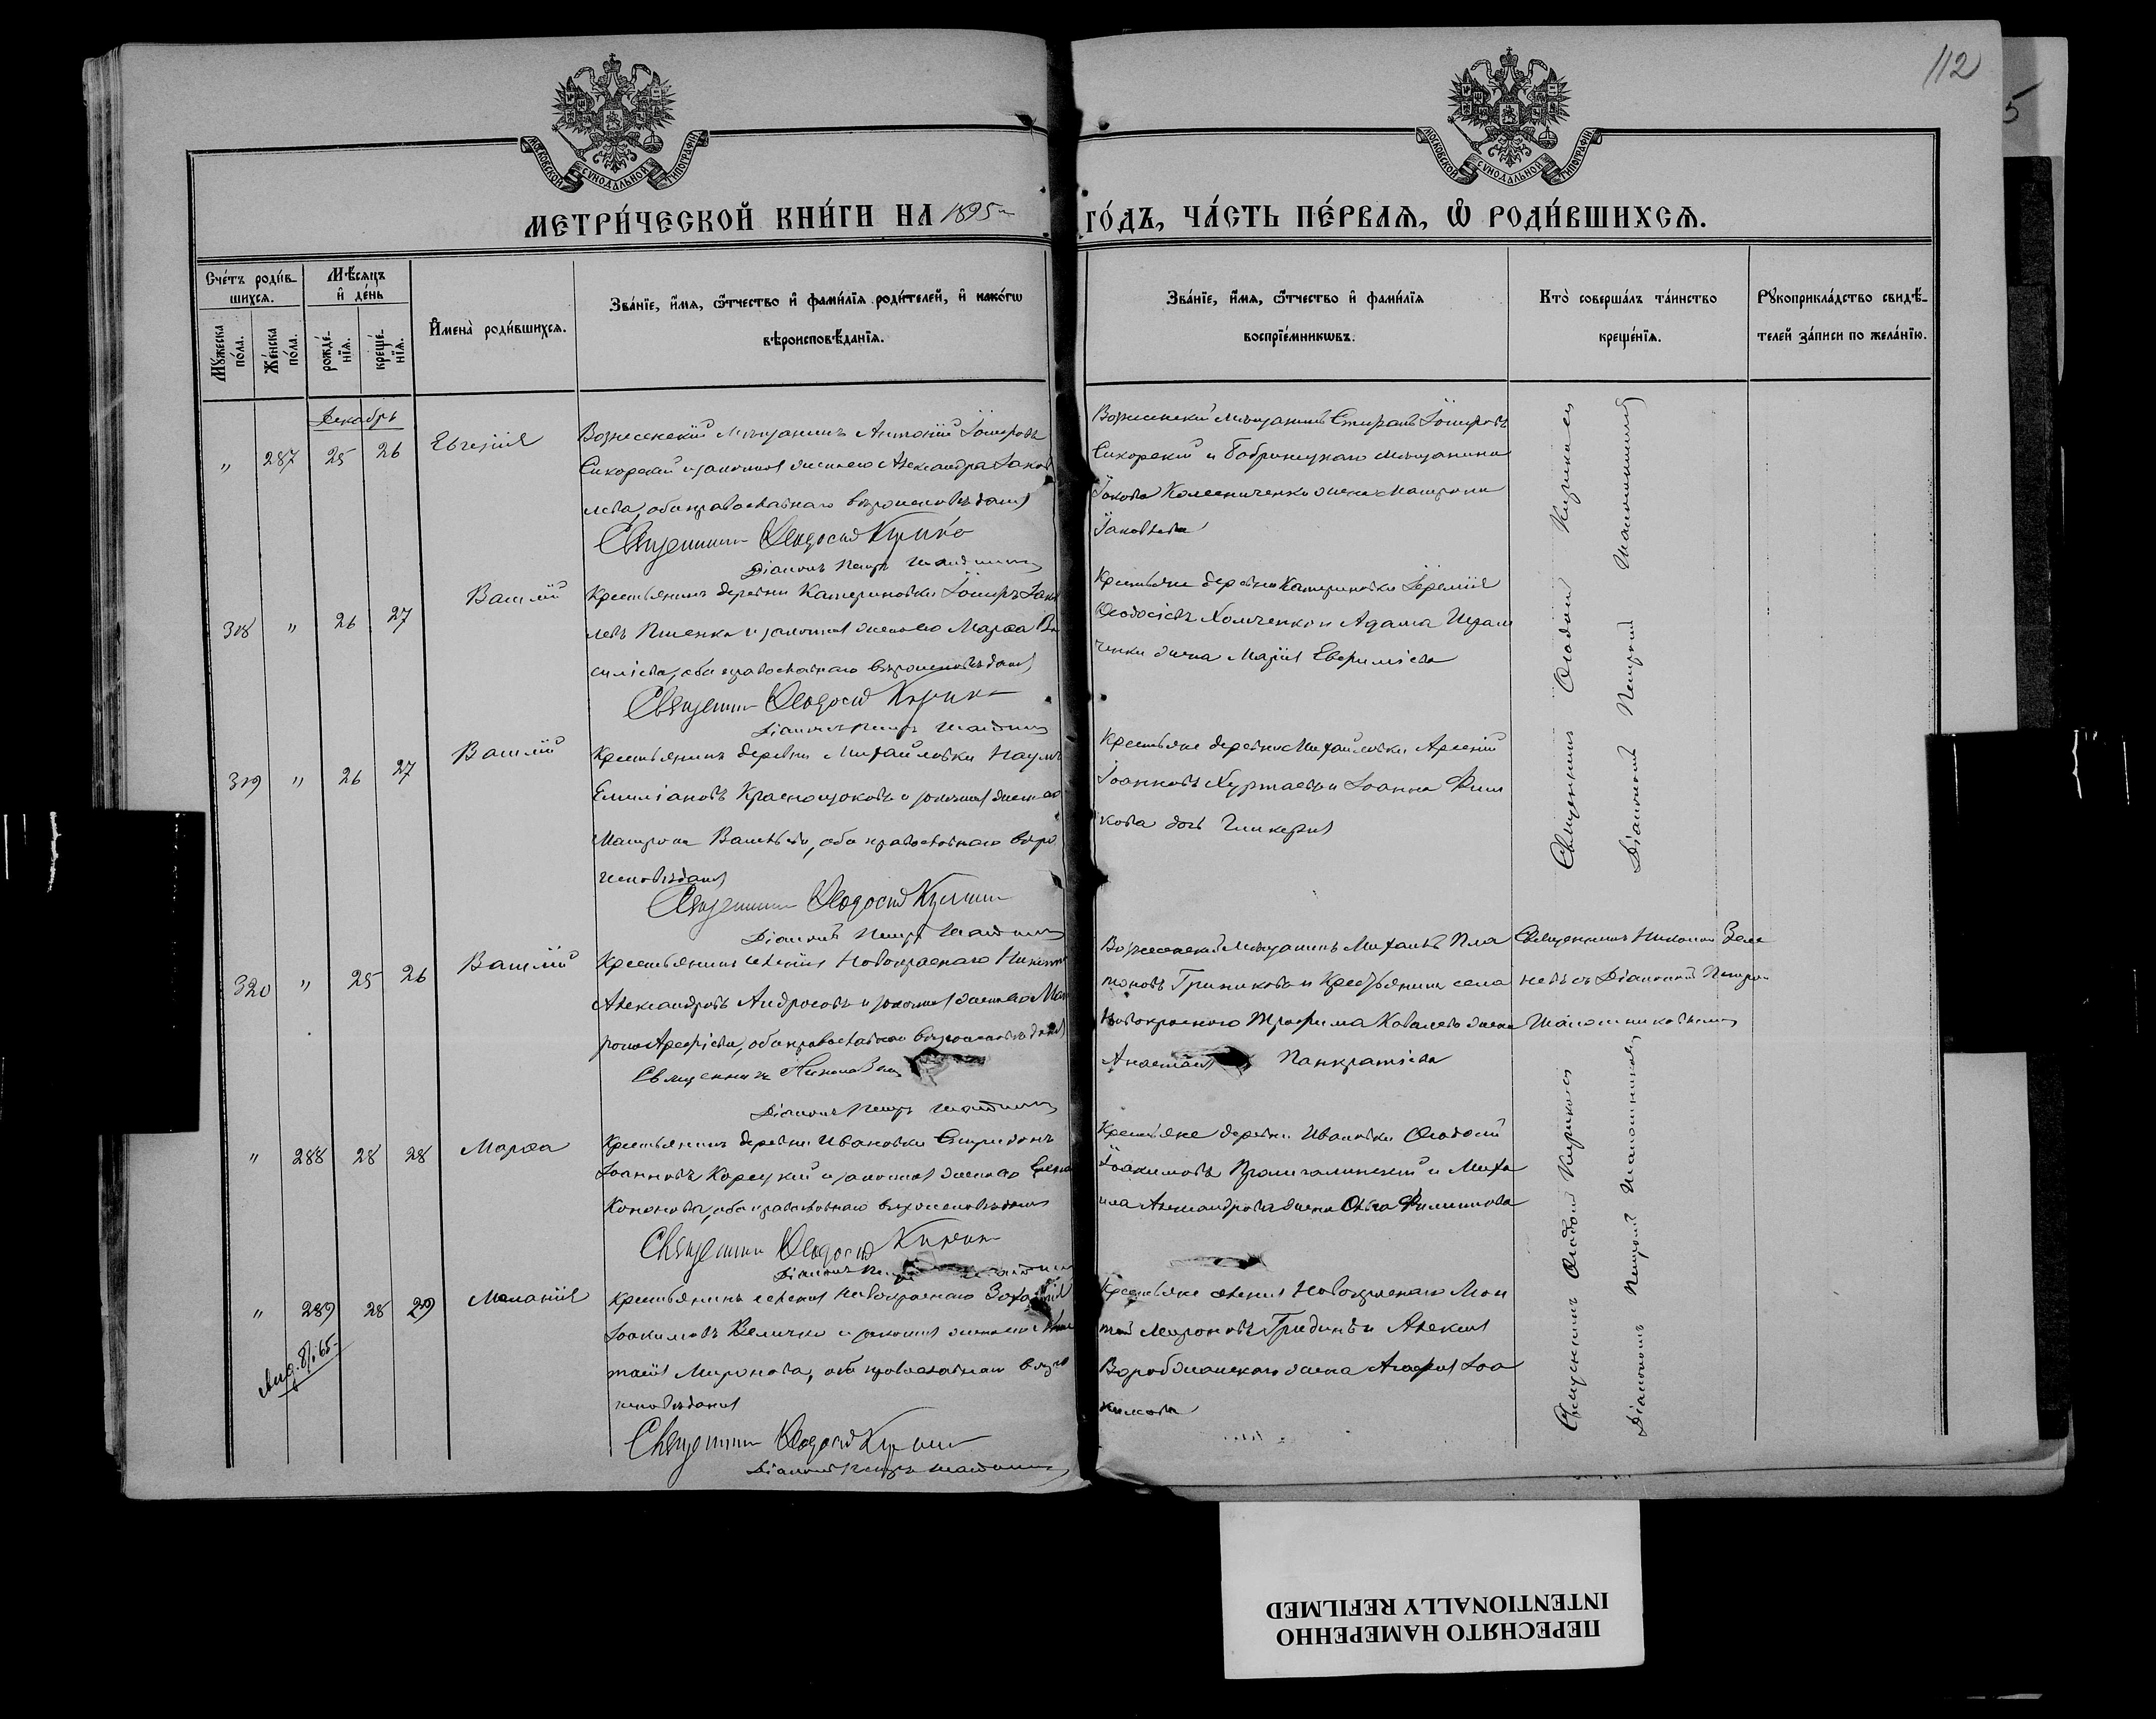 112
5
МОСКОВСКОЙ СѴНОДАЛЬНОЙ ТИПОГРАФІИ
МОСКОВСКОЙ СѴНОДАЛЬНОЙ ТИПОГРАФІИ
МЕТРИ́ЧЕСКОЙ КНИ́ГИ НА 1895 ГО́ДЪ, ЧА́СТЬ ПЕ́РВАЯ, Ѡ РОДИ́ВШИХСЯ.
Сче́тъ роди́в-
шихся.
Мѣ́сяцъ
и҆ де́нь
Мꙋ́жеска
по́ла.
Же́нска
по́ла.
рожде́-
нїя.
креще́-
нїя.
И҆мена̀ роди́вшихся.
Зва́нїе, и҆́мя, ѻ҆́тчество и҆ фами́лїя роди́телей, и҆ како́гѡ
вѣроисповѣ́данїя.
Зва́нїе, и҆́мя, ѻ҆́тчество и҆ фами́лїя
воспрїе́мникѡвъ.
Кто̀ соверша́лъ та́инство
креще́нїя.
Рꙋкоприкла́дство свидѣ́-
телей за́писи по жела́нїю.
Декабрь
" 287 25 26 Евгенія
Вознесенскій мѣщанинъ Антоній Іосифовъ
Сикорскій и законная жена его Александра Іаков
лева, оба православнаго вѣроисповѣданія
Священникъ Ѳеодосій Кирика
Діаконъ Петръ
Вознесенскій мѣщанинъ Стефанъ Іосифовъ
Сикорскій и Бобринецкаго мѣщанина
Іакова Колесниченко жена Матрона
Іаковлева
318 " 26 27 Василій
Крестьянинъ деревни Катериновки Іосифъ Іаков
левъ Пшенко и законная жена его Марѳа Ва
силіева, оба православнаго вѣроисповѣданія
Священникъ Ѳеодосій Кирика
Діаконъ Петръ
Крестьяне деревни Катериновки Іеремія
Ѳеодосіевъ Хомченко и Адама
ченки жена Марія Евфиміева
319 " 26 27 Василій
Крестьянинъ деревни Михайловки Наумъ
Емиліановъ Краснощоковъ и законная жена его
Матрона Васильева, оба православнаго вѣро
исповѣданія
Священникъ Ѳеодосій Кирика
Діаконъ Петръ
Крестьяне деревни Михайловки Арсеній
Іоанновъ и Іоанна
кова дочь Гликерія
Священникъ Ѳеодосій Кирика съ
Діакономъ Петромъ Шапошниковымъ
320 " 25 26 Василій
Крестьянинъ селенія Новокраснаго
Александровъ Андросовъ и законная жена его Мат
рона Арефіева, оба православнаго вѣроисповѣданія
Священникъ Николай
Діаконъ Петръ
Вознесенскій мѣщанинъ Михаилъ Пла
тоновъ и Крестьянина села
Новокраснаго Трофима Ковалева жена
Анастасія Панкратіева
Священникъ Николай Зеле
невъ съ Діакономъ Петром
Шапошниковымъ
" 288 28 28 Марѳа
Крестьянинъ деревни Ивановки Спиридонъ
Іоанновъ Корецкій и законная жена его Елена
Кононова, оба православнаго вѣроисповѣданія
Священникъ Ѳеодосій Кирика
Діаконъ
Крестьяне деревни Ивановки Ѳеодосій
Іоакимовъ и Миха
ила Александрова жена Ольга Филиппова
" 289 28 29 Меланія
8/I 65
Крестьянинъ селенія Новокраснаго Захарій
Іоакимовъ Величко и законная жена его
тасія Миронова, оба православнаго вѣро
исповѣданія
Священникъ Ѳеодосій Кирика
Діаконъ Петръ
Крестьяне селенія Новокраснаго
Мироновъ Гридинъ и Алексія
жена Агафія Іоа
кимова
Священникъ Ѳеодосій Кирика съ
Діакономъ Петромъ Шапошниковымъ
ПЕРЕСНЯТО НАМЕРЕННО
INTENTIONALLY REFILMED